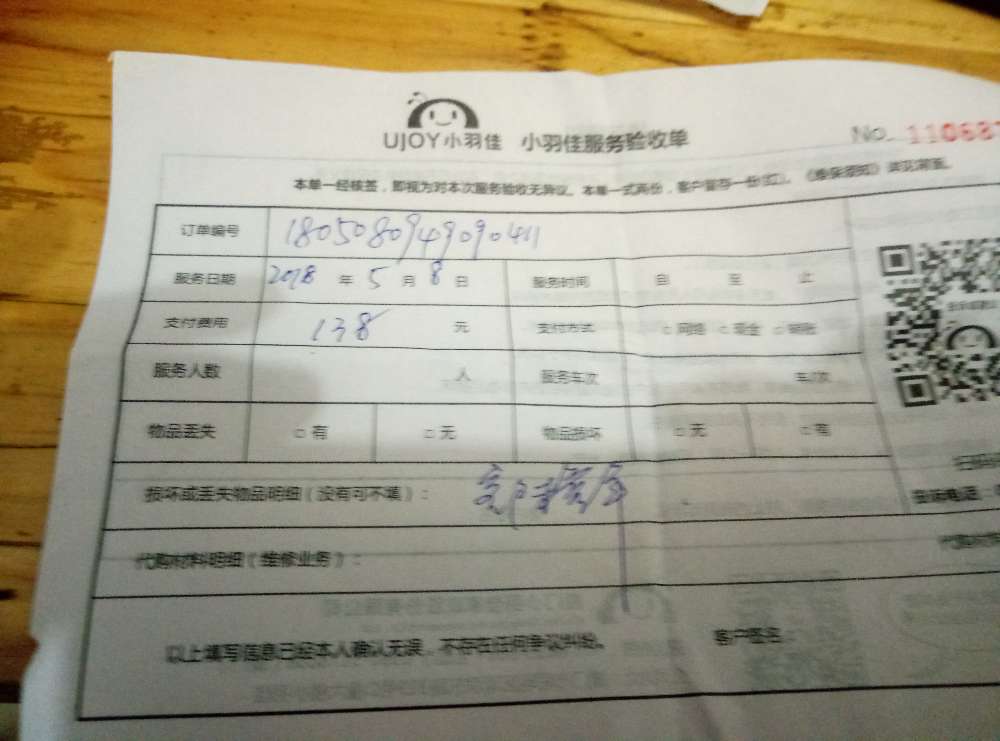 UJOY小羽佳 小羽佳服务验收单 No. 110687
本单一经核签，即视为对本次服务验收无异议。本单一式两份，客户留存一份(红)。《维保须知》详见背面。
订单编号 180508094909041
服务日期 2018 年 5 月 8 日 服务时间 自 至 止
支付费用 138 元 支付方式 □ 网络 □ 现金 □ 转账
服务人数 人 服务车次 车/次
物品丢失 □ 有 □ 无 物品损坏 □ 无 □ 有
损坏或丢失物品明细（没有可不填）：
代购材料明细（维修业务）：
以上填写信息已经本人确认无误，不存在任何争议纠纷。 客户签名：